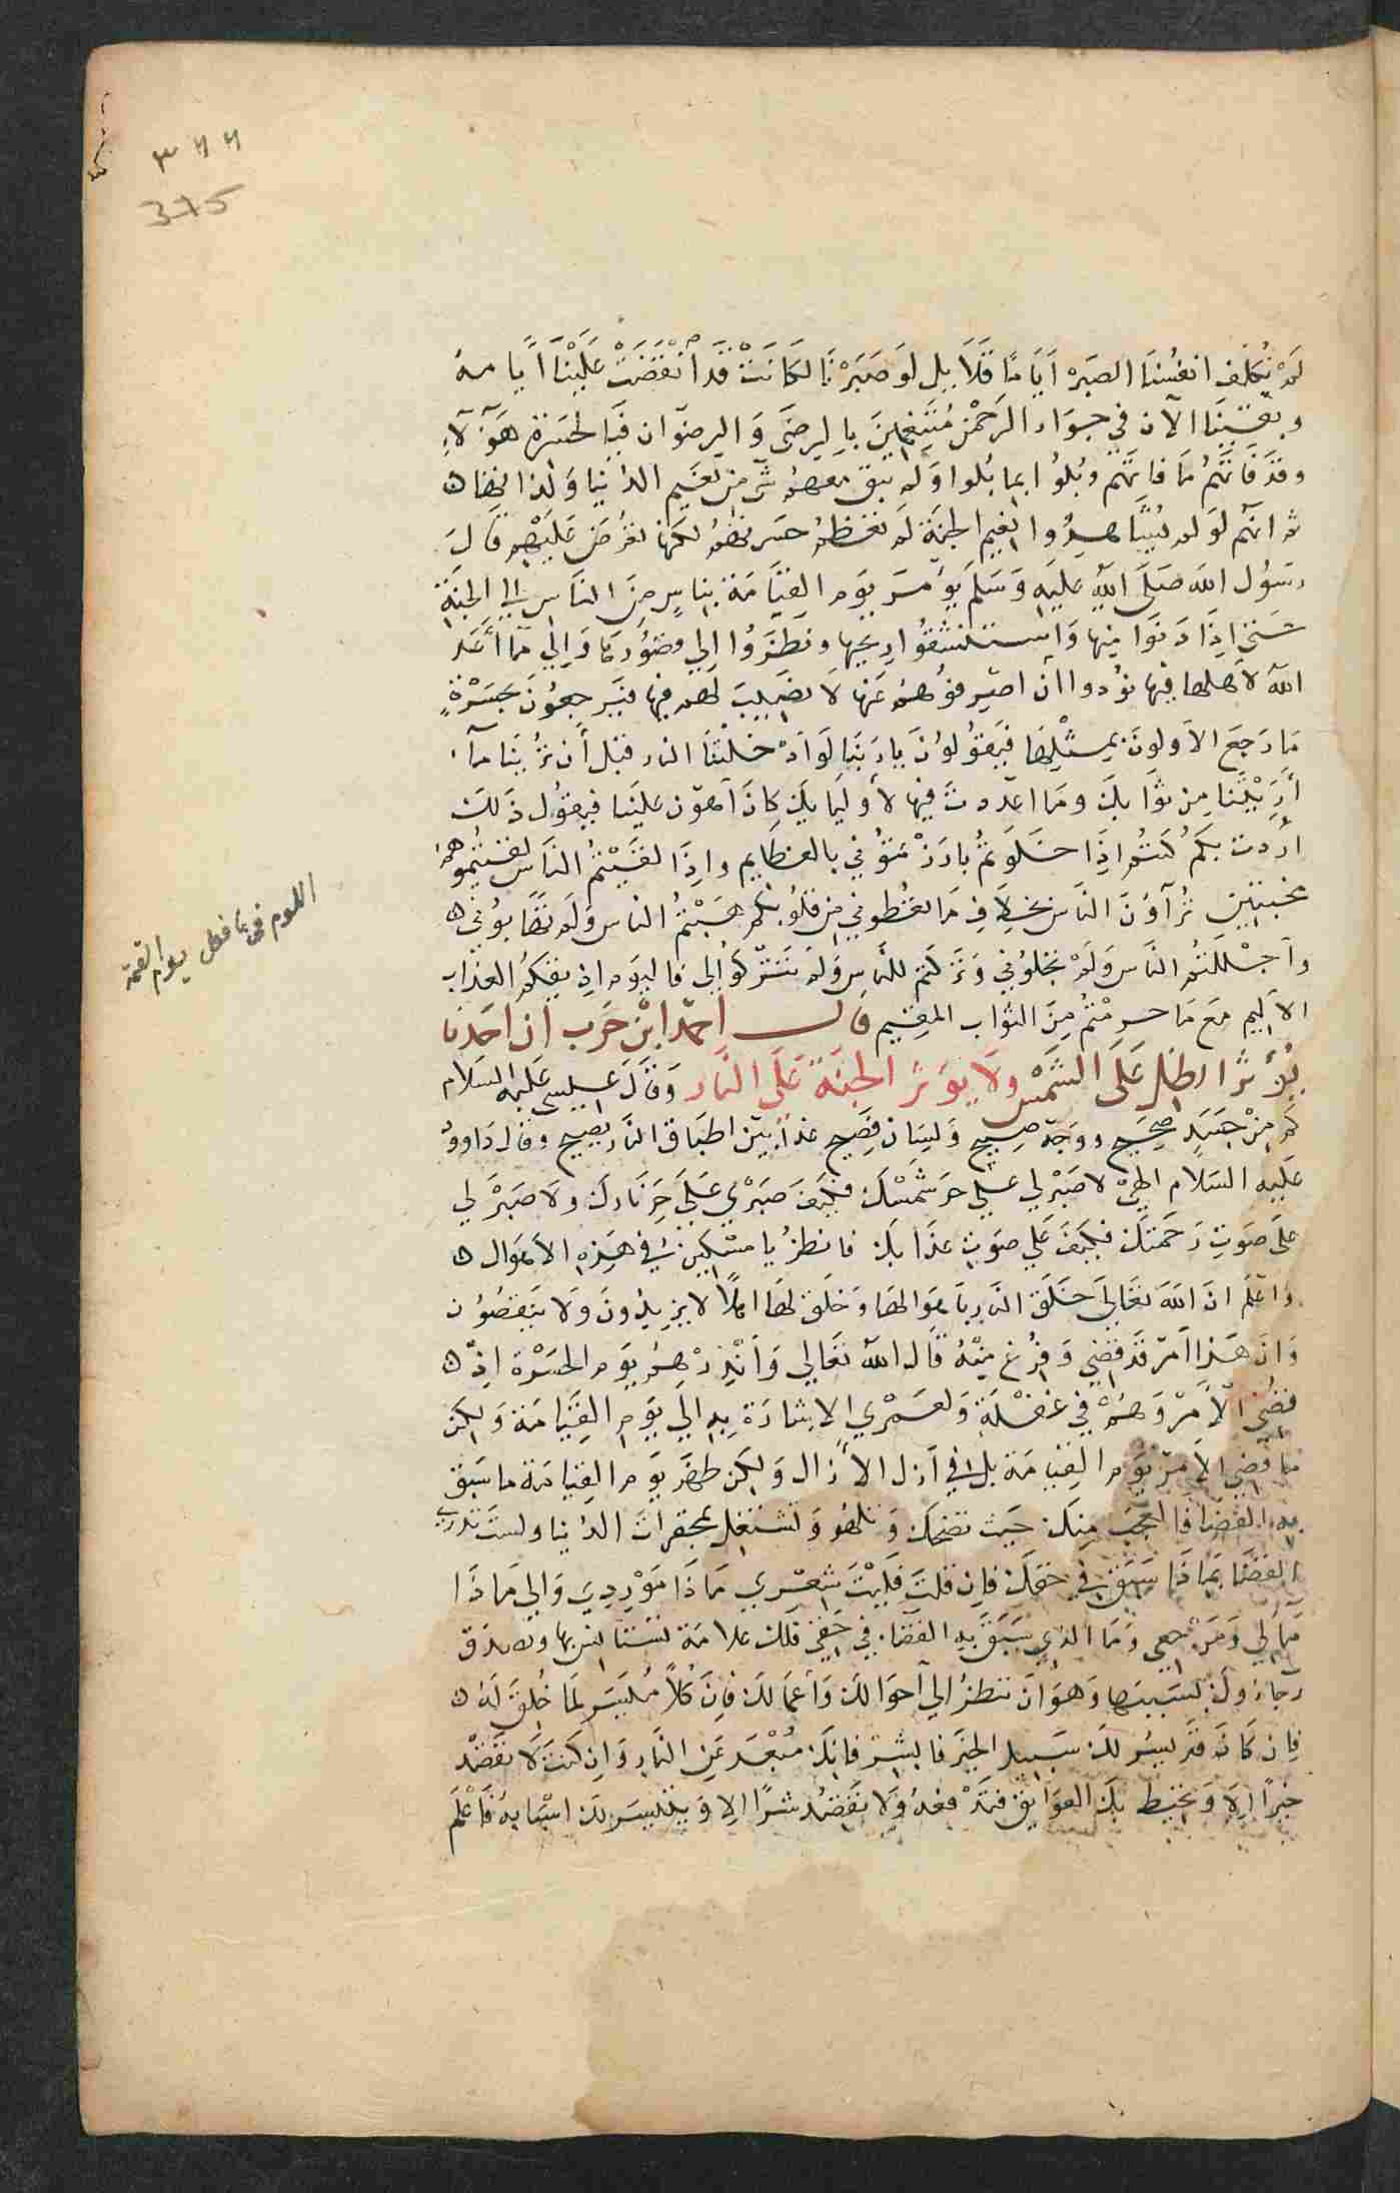 ٣٦٦
375
لم نكلف انفسنا الصبر اياما قلايل لو صبرنا لكانت قد انقضت علينا ايامه
وبقينا الآن في جوار الرحمن متنعمين بالرضى والرضوان فيا لحسرة هؤلاء
وقد فاتهم ما فاتهم وبلوا بما بلوا ولم يبق معهم شئ من نعيم الدنيا ولذاتها ه
ثم انهم لو لم يشاهدوا نعيم الجنة لم تعظم حسرتهم لكنها تعرض عليهم قال
رسول الله صلى الله عليه وسلم يؤمر يوم القيامة بناس من الناس الى الجنة
حتى اذا دنوا منها واستنشقوا ريحها ونظروا الى قصورها والي ما اعد
الله لاهلها فيها نودوا ان اصرفوهم عنها لا نصيب لهم فيها فيرجعون بحسرة
ما رجع الاولون بمثلها فيقولون يا ربنا لو ادخلتنا النار قبل أن ترينا ما
أريتنا من ثوابك وما اعددت فيها لأوليايك كان اهون علينا فيقول ذلك
اردت بكم كنتم اذا خلوتم بارزتموني بالعظايم واذا لقيتم الناس لقيتموهم
مخبتين ترآؤن الناس بخلاف ما تعطوني من قلوبكم هبتم الناس ولم تهابوني ه
واجللتم الناس ولم تجلوني وتركتم للناس ولم تتركوا لي فاليوم اذيقكم العذاب
الاليم مع ما حرمتم من الثواب المقيم قال احمد ابن حرب ان احدنا
يؤثر الظل على الشمس ولا يوثر الجنة على النار وقال عيسى عليه السلام
كم من جسد صحيح ووجه صبيح ولسان فصيح غدا بين اطباق النار يصيح وقال داوود
عليه السلام الهي لا صبر لي على حر شمسك فكيف صبري على حر نارك ولا صبر لي
على صوت رحمتك فكيف على صوت عذابك فانظر يا مسكين في هذه الاهوال ه
واعلم ان الله تعالى خلق النار باهوالها وخلق لها اهلا لا يزيدون ولا ينقصون
وان هذا امر قد قضي وفرغ منه قال الله تعالي وانذرهم يوم الحسرة اذ ه
قضي الامر وهم في غفلة ولعمري الاشارة به الي يوم القيامة ولكن
ما قضي الامر يوم القيامة بل في ازل الأزال ولكن ظهر يوم القيامة ما سبق
به القضا فالعجب منك حيث تضحك وتلهو وتشتغل بمحقرات الدنيا ولست تدري
القضا بماذا سبق في حقك فان قلت فليت شعري ماذا موردي والي ماذا
مآلي ومرجعي وما الذي سبق به القضاء في حقي فلك علامة تستانس بها وتصدق
رجاؤك بسببها وهو ان تنظر الي احوالك واعمالك فان كلا ميسر لما خلق له ه
فان كان قد يسر لك سبيل الخير فابشر فانك مبعد عن النار وان كنت لا تقصد
خيرا الا وتحيط بك العوايق فتدفعه ولا تقصد شرا الا ويتيسر لك اسبابه فاعلم